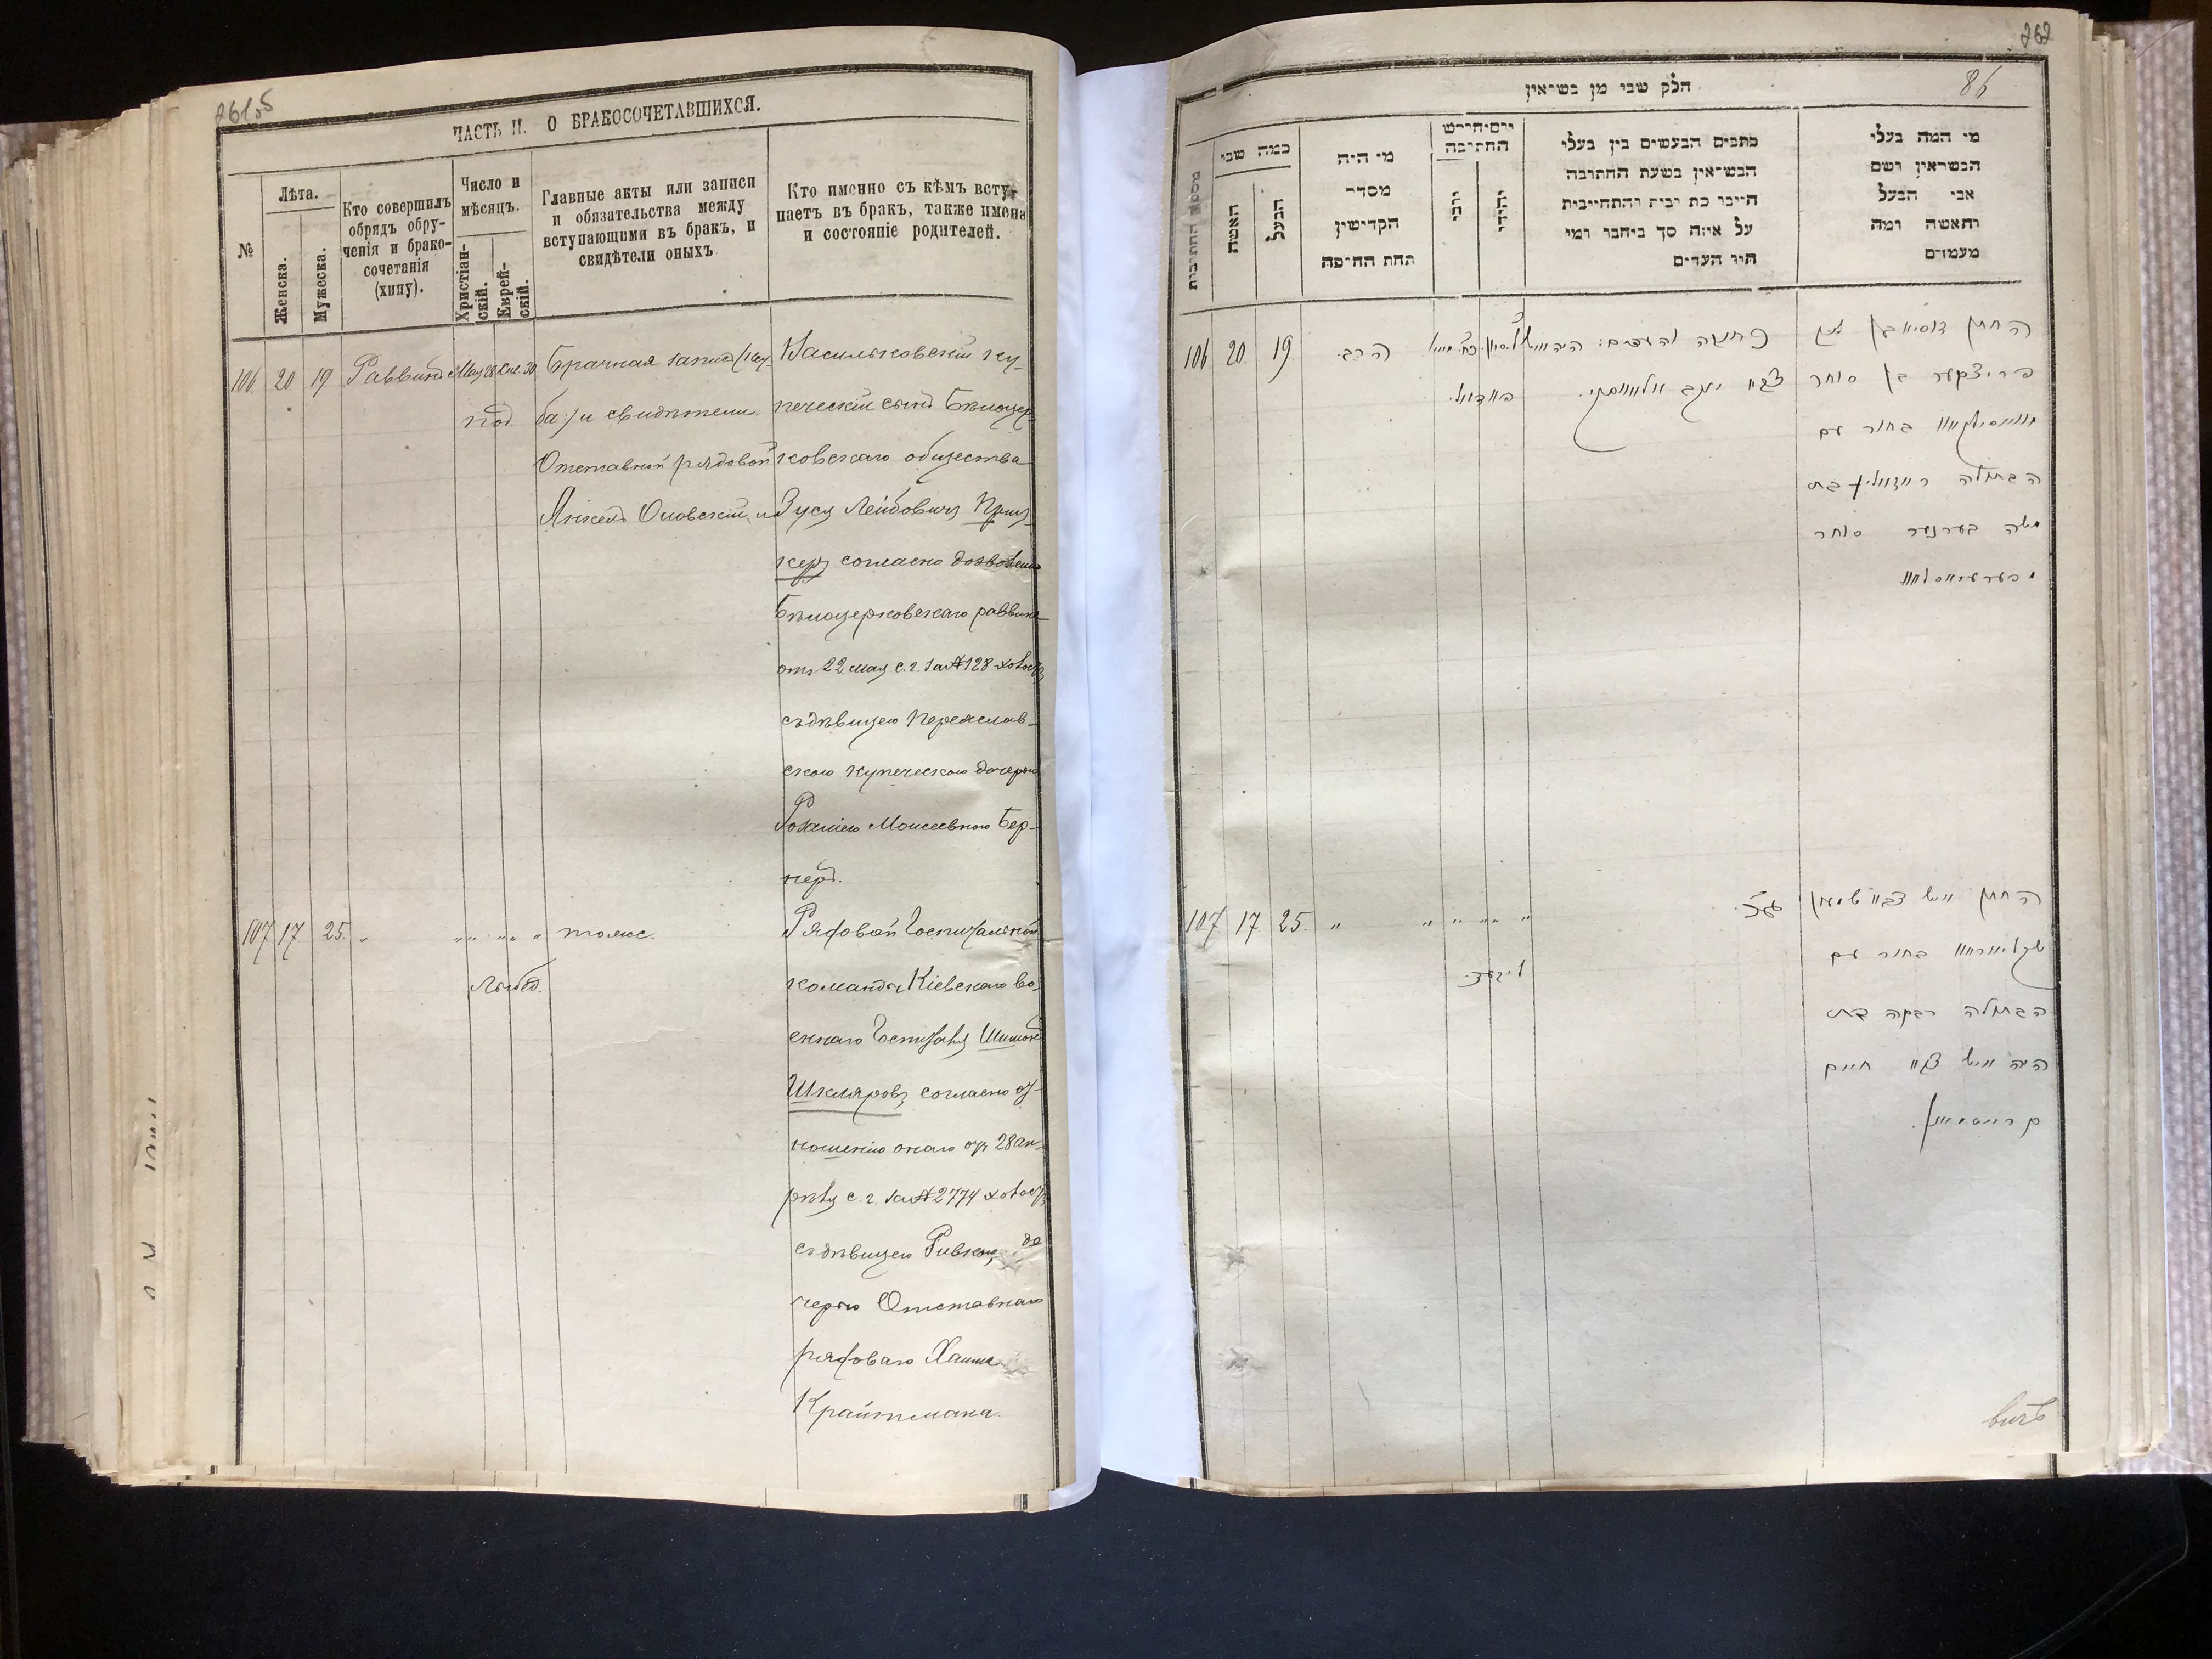 261об
ЧАСТЬ II. О БРАКОСОЧЕТАВШИХСЯ.
№
Лѣта.
Женска.
Мужеска.
Кто совершилъ
обрядъ обру-
ченія и брако-
сочетанія
(хипу).
Число и
мѣсяцъ.
Христіан-
скій.
Еврей-
скій.
Главные акты или записи
и обязательства между
вступающими въ бракъ, и
свидѣтели оныхъ
Кто именно съ кѣмъ всту-
паетъ въ бракъ, также имена
и состояніе родителей.
106 20 19 Раввинъ Мая 28
Под.
Брачная запись
ба:/ и свидѣтели:
Отставной рядовой
Янкель и
Васильковскій ку-
печескій сынъ Бѣлоцер-
ковскаго общества
Зусь ЛейбовичъПриц-
керъ согласно дозволенію
Бѣлоцерковскаго раввина
отъ 22 мая с. г. за № 128 холостъ
съ дѣвицею Переяслав-
скою купеческою дочерью
Розаліею Моисеевною Бер-
неръ.
107 17 25. " " " " " тоже.
Лыбед.
Рядовой Госпитальной
команды Кіевскаго во-
еннаго Госпиталя Шимонъ
Шкляровъ согласно от-
ношенію онаго отъ 28 ап-
рѣля с. г. за № 2774 холостъ
съ дѣвицею Ривкою, до
черью Отставнаго
рядоваго Хаима
Крайтмана.
262
86
חלק שני מן נשואין
מספר החתונות
כמה שני
האשה
הבעל
מי היה
מסדר
הקדישין
תחת החופה
יום וחודש
החתונה
יוני
יהודי
כתבים הנעשים בין בעלי
הנשואין בשעת החתונה
היינו כתובות והתחייבות
על איזה סך ביחבו ומי
היו העדים
מי המה בעלי
הנשואין ושם
אבי הבעל
והאשה ומה
מעמדם
106 20. 19. הרב.
פאדאל.
החתן זוסיא בן ליב
פריצקער בן סוחר
בחור עם
הבתולה בת
משה בערנער סוחר
107 17. 25. " " " " "
ליבעד.
החתן איש צבא שימעון
שקליאראוו בחור עם
הבתולה רבקה בת
היה איש צבא חיים
קרייטמאן.